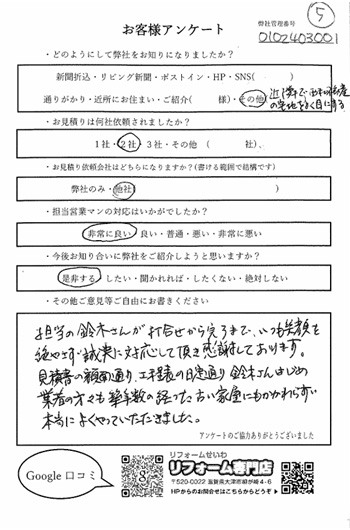 お客様アンケート
弊社管理番号
⑤
0102403001
・どのようにして弊社をお知りになりましたか?
新聞折込・リビング新聞・ポストイン・HP・SNS( )
通りがかり・近所にお住まい・ご紹介( 様)・その他
近隣で
の宅地をよく目にする
・お見積りは何社依頼されましたか?
1社・2社・3社・その他( 社)、
・お見積り依頼会社はどちらになりますか?(書ける範囲で結構です)
弊社のみ・他社( )
・担当営業マンの対応はいかがでしたか?
非常に良い・良い・普通・悪い・非常に悪い
・今後お知り合いに弊社をご紹介しようと思いますか?
是非する・したい・聞かれれば・したくない・絶対しない
・その他ご意見等ご自由にお書きください
担当の鈴木さんが打合せから完了まで、いつも笑顔を
絶やさず誠実に対応して頂き感謝しております。
見積書の額面通り、工程表の日定通り鈴木さんはじめ
業者の方々も築年数の経った古い家屋にもかかわらず
本当によくやっていただきました。
アンケートのご協力ありがとうございました
Google 口コミ
リフォームせいわ
リフォーム専門店
〒520-0022 滋賀県大津市柳が崎4-6
HPからのお問合せはこちらからどうぞ